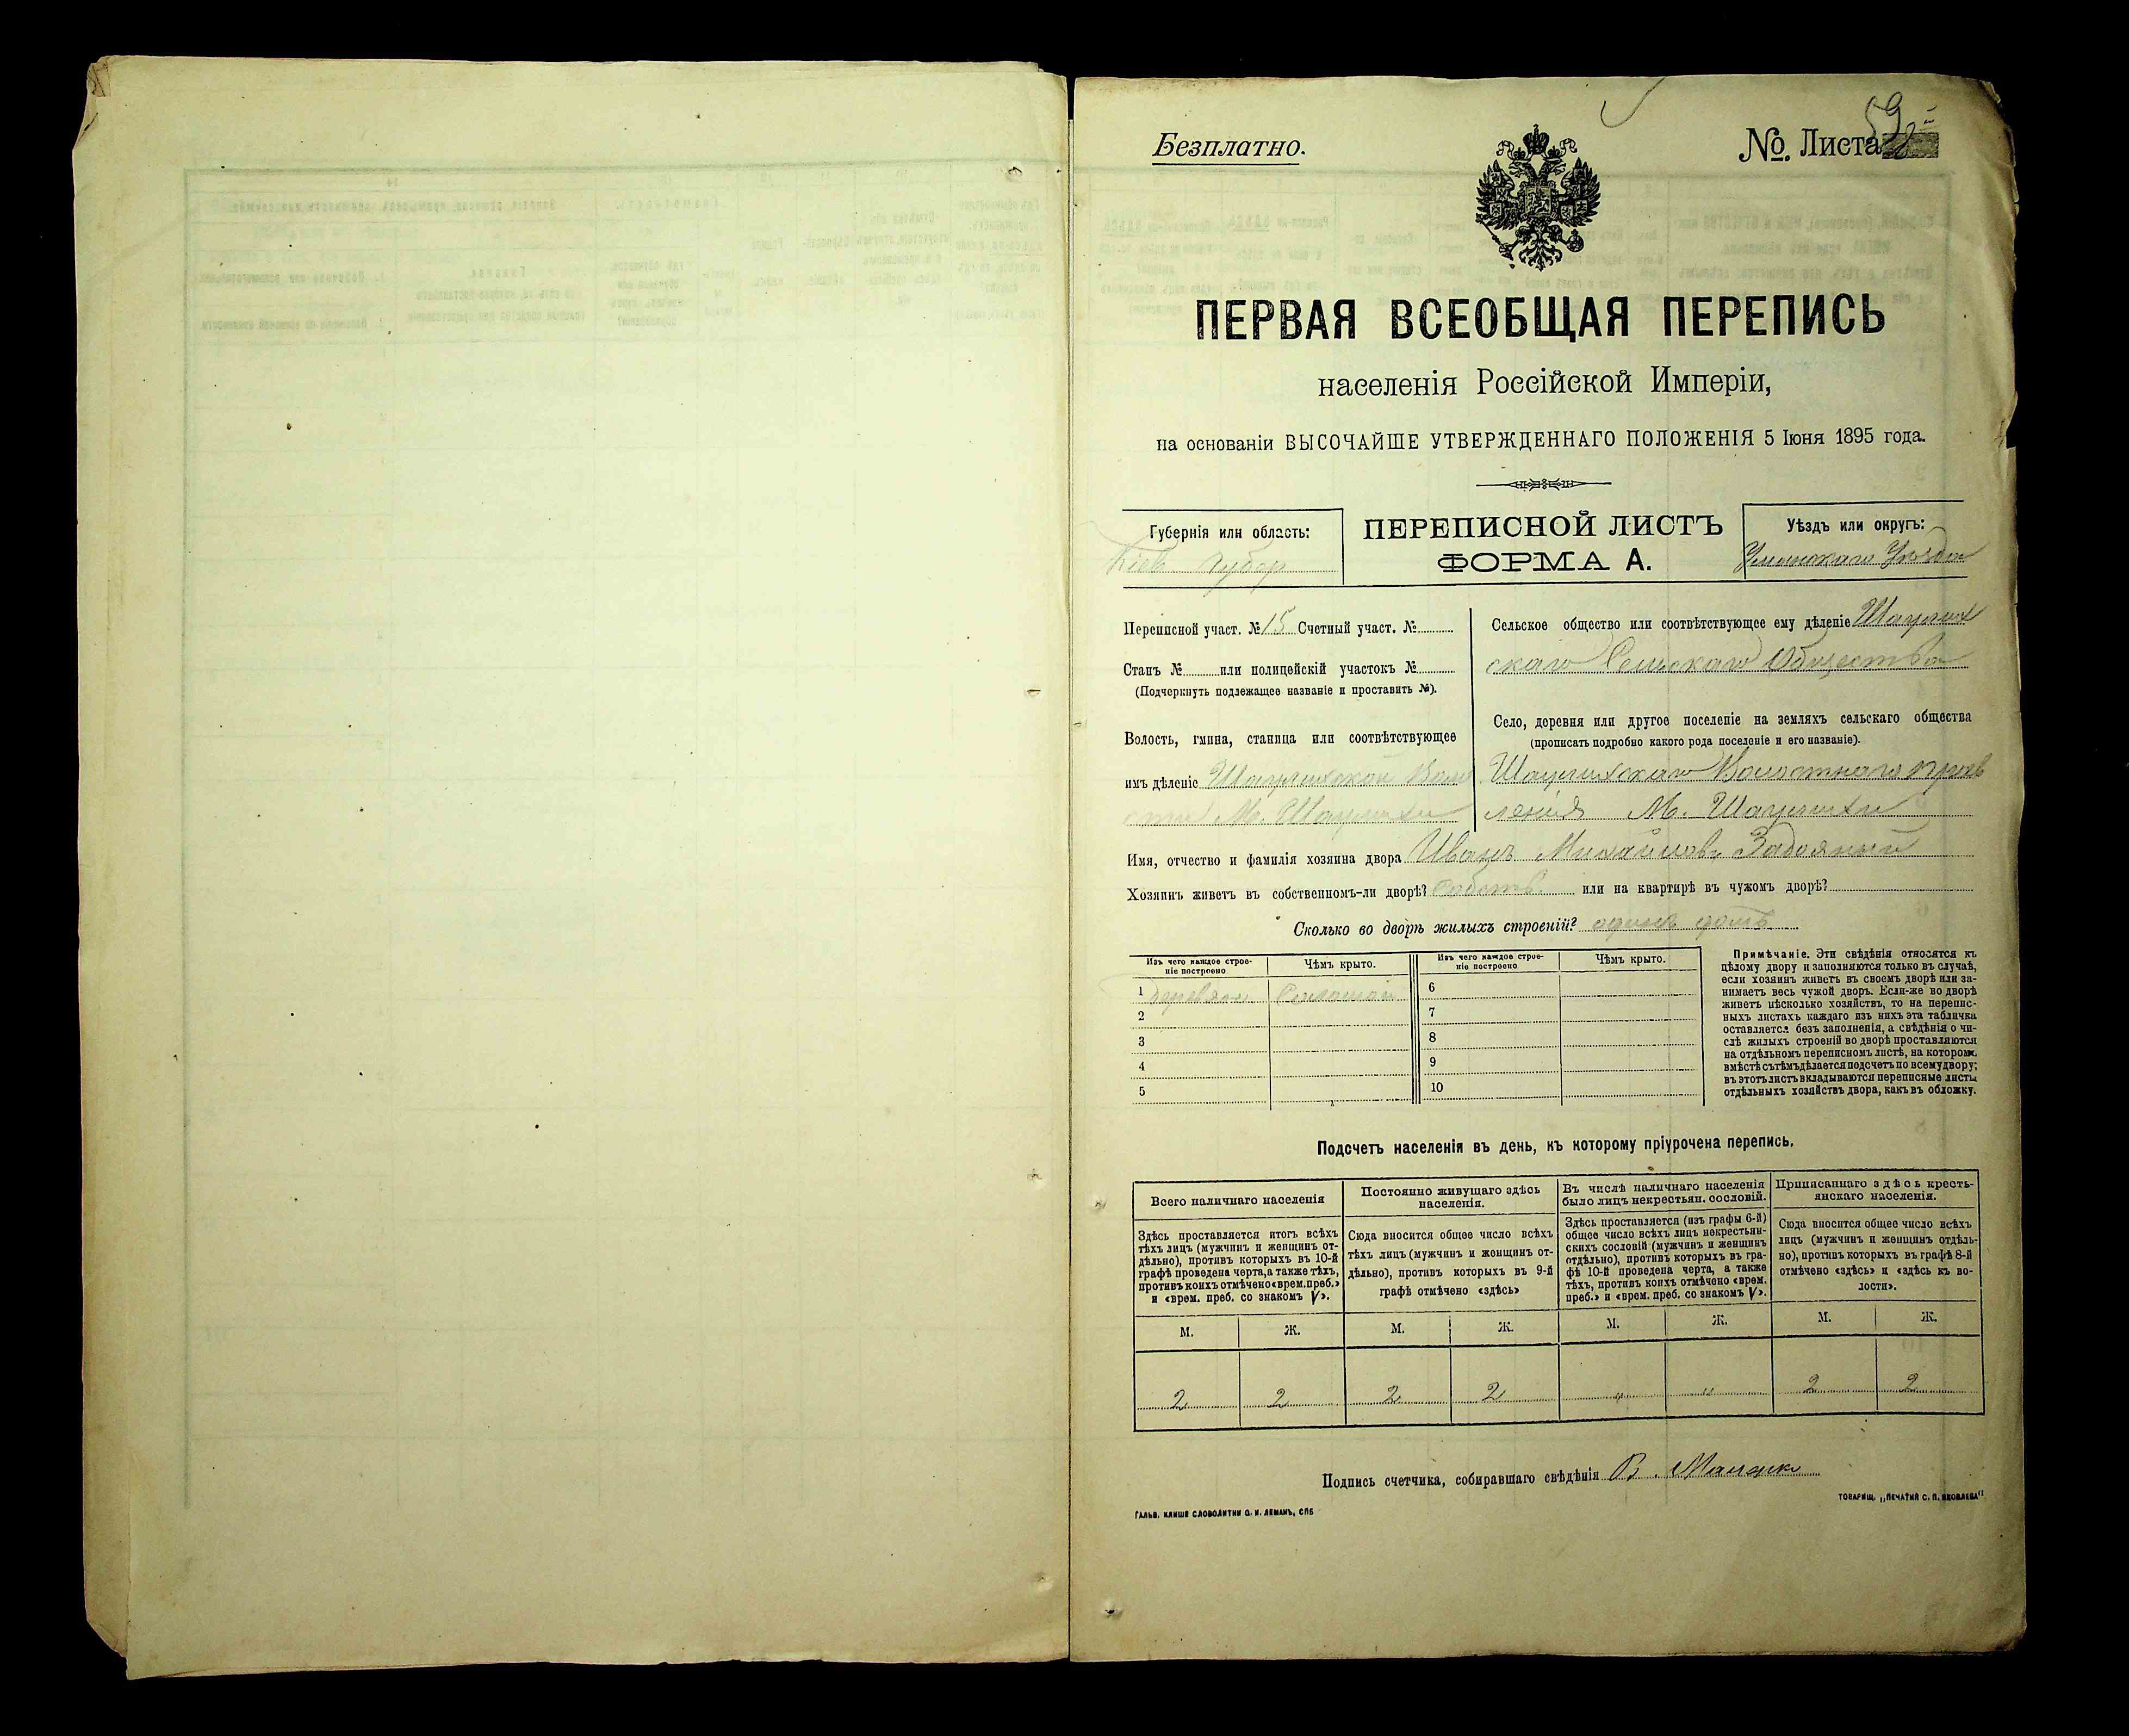 Безплатно.
№. Листа 59
ПЕРВАЯ ВСЕОБЩАЯ ПЕРЕПИСЬ
населенія Россійской Имперіи,
на основаніи ВЫСОЧАЙШЕ УТВЕРЖДЕННАГО ПОЛОЖЕНІЯ 5 Іюня 1895 года.
Губернія или область:
Кіев Губер
ПЕРЕПИСНОЙ ЛИСТЪ
ФОРМА А.
Уѣздъ или округъ:
Уманскаго Уѣзда
Переписной участ. № 15 Счетный участ. №
Станъ № или полицейскій участокъ №
(Подчеркнуть подлежащее названіе и проставить №).
Волость, гмина, станица или соотвѣтствующее
имъ дѣленіе Шаулихской Воло
сти М. Шаулихи
Сельское общество или соотвѣтствующее ему дѣленіе Шаулих
скаго Сельскаго Общества
Село, деревня или другое поселеніе на земляхъ сельскаго общества
(прописать подробно какого рода поселеніе и его названіе).
Шаулихскаго Волостнаго прав
ленія М. Шаулихи
Имя, отчество и фамилія хозяина двора Иванъ Михайловъ Задояный
Хозяинъ живетъ въ собственномъ-ли дворѣ? Собств. или на квартирѣ въ чужомъ дворѣ?
Сколько во дворѣ жилыхъ строеній? одинъ домъ
Изъ чего каждое строе-
ніе построено
Чѣмъ крыто.
Изъ чего каждое строе-
ніе построено
Чѣмъ крыто.
1 Деревян Соломой
2
3
4
5
6
7
8
9
10
Примѣчаніе. Эти свѣдѣнія относятся къ
цѣлому двору и заполняются только въ случаѣ,
если хозяинъ живетъ въ своемъ дворѣ или за-
нимаетъ весь чужой дворъ. Если-же во дворѣ
живетъ нѣсколько хозяйствъ, то на перепис-
ныхъ листахъ каждаго изъ нихъ эта табличка
оставляется безъ заполненія, а свѣдѣнія о чи-
слѣ жилыхъ строеній во дворѣ проставляются
на отдѣльномъ переписномъ листѣ, на которомъ
вмѣстѣ съ тѣмъ дѣлается подсчетъ по всему двору;
въ этотъ листъ вкладываются переписные листы
отдѣльныхъ хозяйствъ двора, какъ въ обложку.
Подсчетъ населенія въ день, къ которому пріурочена перепись.
Всего наличнаго населенія
Здѣсь проставляется итогъ всѣхъ
тѣхъ лицъ (мужчинъ и женщинъ от-
дѣльно), противъ которыхъ въ 10-й
графѣ проведена черта, а также тѣхъ,
противъ коихъ отмѣчено «врем. преб.»
и «врем. преб. со знакомъ V».
Постоянно живущаго здѣсь
населенія.
Сюда вносится общее число всѣхъ
тѣхъ лицъ (мужчинъ и женщинъ от-
дѣльно), противъ которыхъ въ 9-й
графѣ отмѣчено «здѣсь»
Въ числѣ наличнаго населенія
было лицъ некрестьян. сословій.
Здѣсь проставляется (изъ графы 6-й)
общее число всѣхъ лицъ некрестьян-
скихъ сословій (мужчинъ и женщинъ
отдѣльно), противъ которыхъ въ гра-
фѣ 10-й проведена черта, а также
тѣхъ, противъ коихъ отмѣчено «врем.
преб.» и «врем. преб. со знакомъ V».
Приписаннаго здѣсь кресть-
янскаго населенія.
Сюда вносится общее число всѣхъ
лицъ (мужчинъ и женщинъ отдѣль-
но), противъ которыхъ въ графѣ 8-й
отмѣчено «здѣсь» и «здѣсь къ во-
лости».
М. Ж. М. Ж. М. Ж. М. Ж.
2 2 2 2 " " 2 2
Подпись счетчика, собиравшаго свѣдѣнія В.
ГАЛЬВ. КЛИШЕ СЛОВОЛИТНИ О. И. ЛЕМАНЪ, СПБ
ТОВАРИЩ. „ПЕЧАТНИ С. П. ЯКОВЛЕВА"